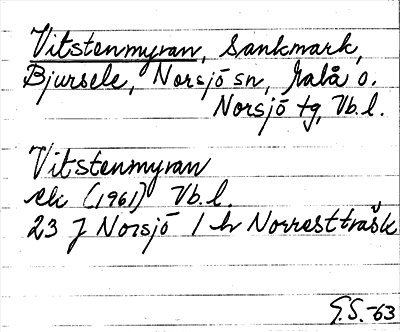 Vitstenmyran, Sankmark,
Bjursele, Norsjö sn, Malå o.
Norsjö tg, Vb.l.
Vitstenmyran
ek (1961) Vb.l.
23 J Norsjö 1 h Norresttrašk
G.S.-63